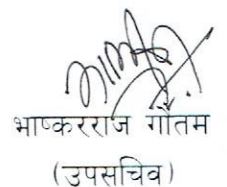 भाष्करराज गौतम
(उपसचिव)